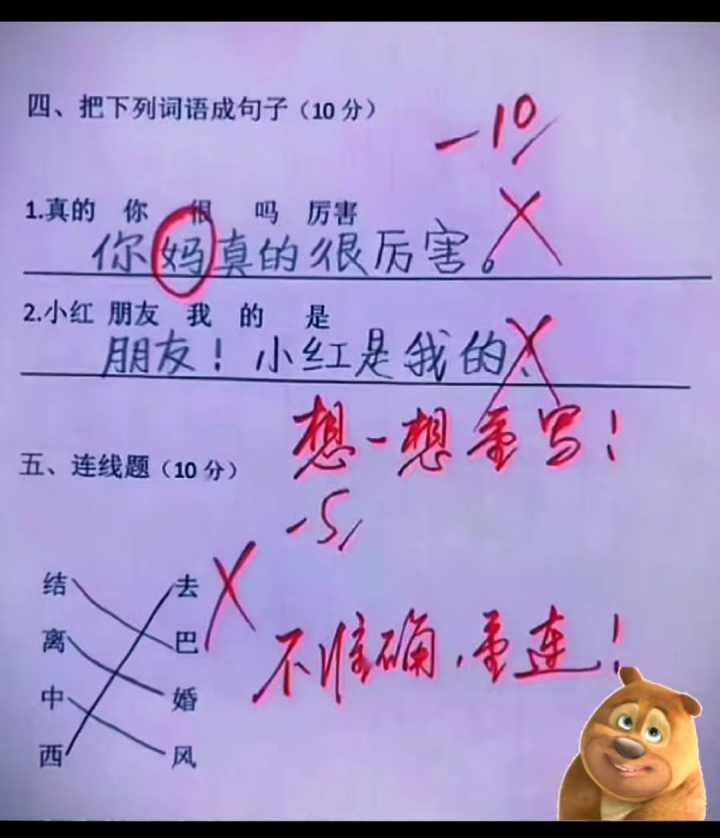 四、把下列词语成句子（10 分）
-10
1.真的 你 很 吗 厉害
你妈真的很厉害。
2.小红 朋友 我 的 是
朋友！小红是我的、
想一想重写！
五、连线题（10 分）
-5
结 去
离 巴
不准确，重连！
中 婚
西 风